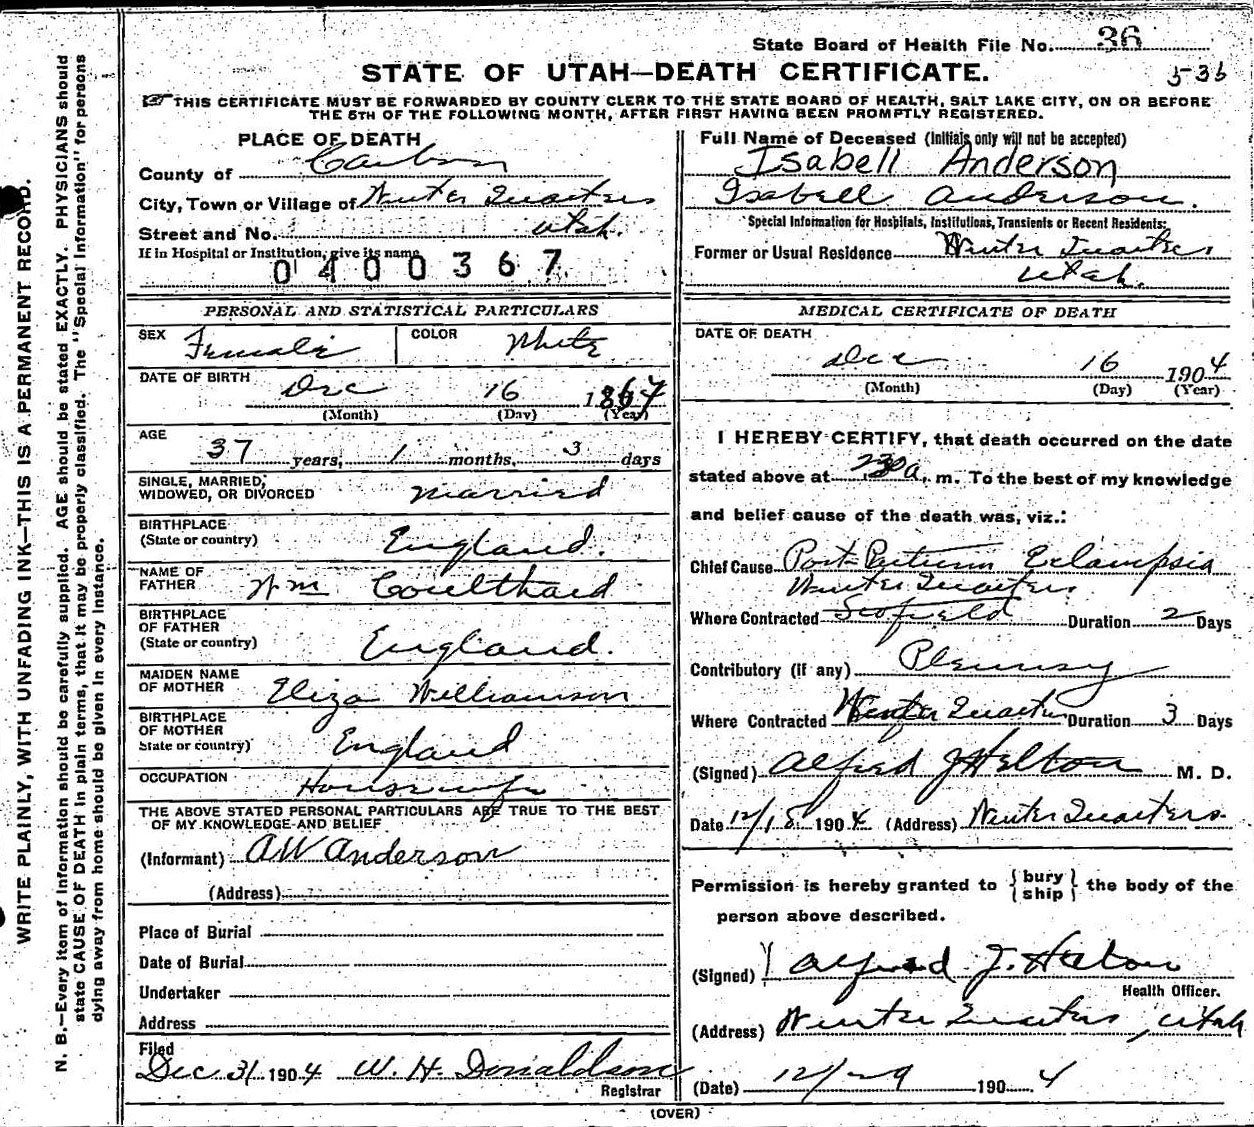 State Board of Health File No. 36
STATE OF UTAH—DEATH CERTIFICATE.
5-36
THIS CERTIFICATE MUST BE FORWARDED BY COUNTY CLERK TO THE STATE BOARD OF HEALTH, SALT LAKE CITY, ON OR BEFORE
THE 5TH OF THE FOLLOWING MONTH, AFTER FIRST HAVING BEEN PROMPTLY REGISTERED.
WRITE PLAINLY, WITH UNFADING INK—THIS IS A PERMANENT RECORD.
N. B.—Every item of information should be carefully supplied. AGE should be stated EXACTLY. PHYSICIANS should
state CAUSE OF DEATH in plain terms, that it may be properly classified. The "Special Information" for persons
dying away from home should be given in every instance.
PLACE OF DEATH
County of Carbon
City, Town or Village of Winter Quarters
Street and No. Utah.
If in Hospital or Institution, give its name
0400367
PERSONAL AND STATISTICAL PARTICULARS
SEX Female COLOR White
DATE OF BIRTH Dec 16 1867
(Month) (Day) (Year)
AGE
37 years, 1 months, 3 days
SINGLE, MARRIED,
WIDOWED, OR DIVORCED Married
BIRTHPLACE
(State or country) England.
NAME OF
FATHER Wm Coulthard
BIRTHPLACE
OF FATHER
(State or country) England.
MAIDEN NAME
OF MOTHER Eliza Williamson
BIRTHPLACE
OF MOTHER
State or country) England
OCCUPATION Housewife
THE ABOVE STATED PERSONAL PARTICULARS ARE TRUE TO THE BEST
OF MY KNOWLEDGE AND BELIEF
(Informant) AW Anderson
(Address)
Place of Burial
Date of Burial
Undertaker
Address
Filed
Dec 31 1904 W. H. Donaldson
Registrar
Full Name of Deceased (Initials only will not be accepted)
Isabell Anderson
Isabell Anderson.
Special Information for Hospitals, Institutions, Transients or Recent Residents:
Former or Usual Residence Winter Quarters
Utah.
MEDICAL CERTIFICATE OF DEATH
DATE OF DEATH
Dec 16 1904
(Month) (Day) (Year)
I HEREBY CERTIFY, that death occurred on the date
stated above at 230 a. m. To the best of my knowledge
and belief cause of the death was, viz.:
Chief Cause Post Partum Eclampsia
Winter Quarters.
Where Contracted Scofield Duration 2 Days
Contributory (if any) Pleurisy
Where Contracted Winter Quarters Duration 3 Days
(Signed) Alfred J Helton M. D.
Date 12/18 1904 (Address) Winter Quarters.
Permission is hereby granted to {bury
ship} the body of the
person above described.
(Signed) Alfred J. Helton
Health Officer.
(Address) Winter Quarters, Utah
(Date) 12/29 1904
(OVER)